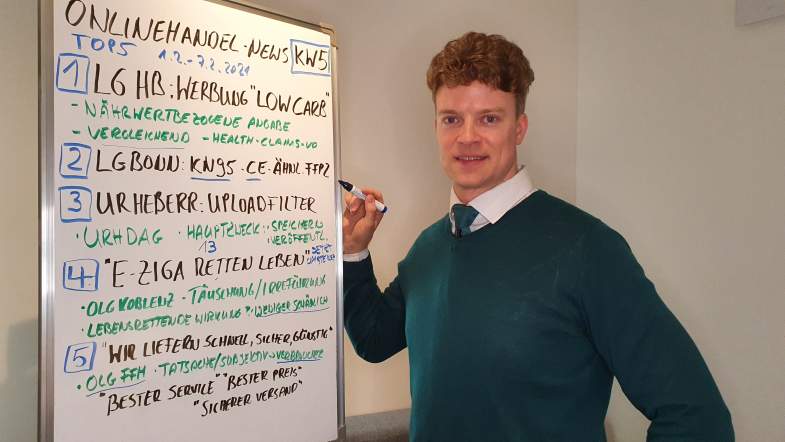 ONLINEHANDEL-NEWS KW5
TOP5 1.2.-7.2.2021
1 LG HB: WERBUNG "LOW CARB"
- NÄHRWERTBEZOGENE ANGABE
- VERGLEICHEND - HEALTH-CLAIMS-VO
2 LG BONN: KN95 - CE - ÄHNL. FFP2
3 URHEBERR.: UPLOADFILTER
· URHDAG · HAUPTZWECK: SPEICHERN
VERÖFFENTL.
13
4. "E-ZIGA RETTEN LEBEN" JETZT
· OLG KOBLENZ · TÄUSCHUNG/IRREFÜHRUNG
· LEBENSRETTENDE WIRKUNG ≠ WENIGER SCHÄDLICH
5 "WIR LIEFERN SCHNELL, SICHER, GÜNSTIG"
· OLG FFM · TATSACHE/SUBJEKTIV → VERBRAUCHER
"BESTER SERVICE" "BESTER PREIS"
"SICHERER VERSAND"